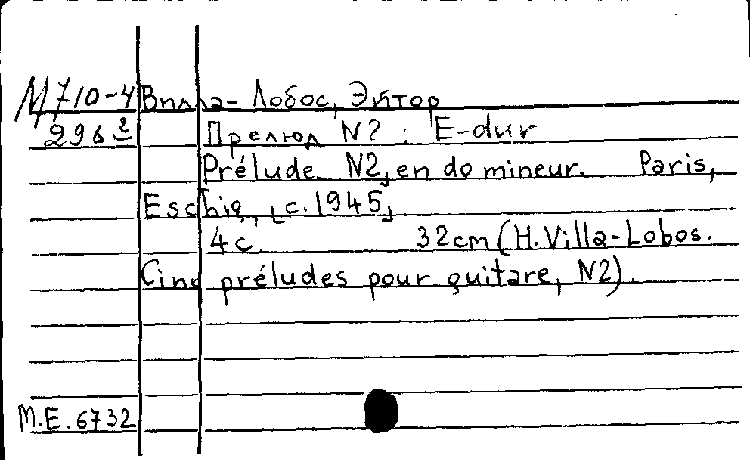 М 710-4 Вилла-Лобос, Эйтор
296 2 Прелюд N2 : E-dur
Prélude N2, en do mineur. Paris,
Eschig, [c. 1945]
4 с. 32 cm (H. Villa-Lobos.
Cinq préludes pour guitare, N2).
M.E. 6732